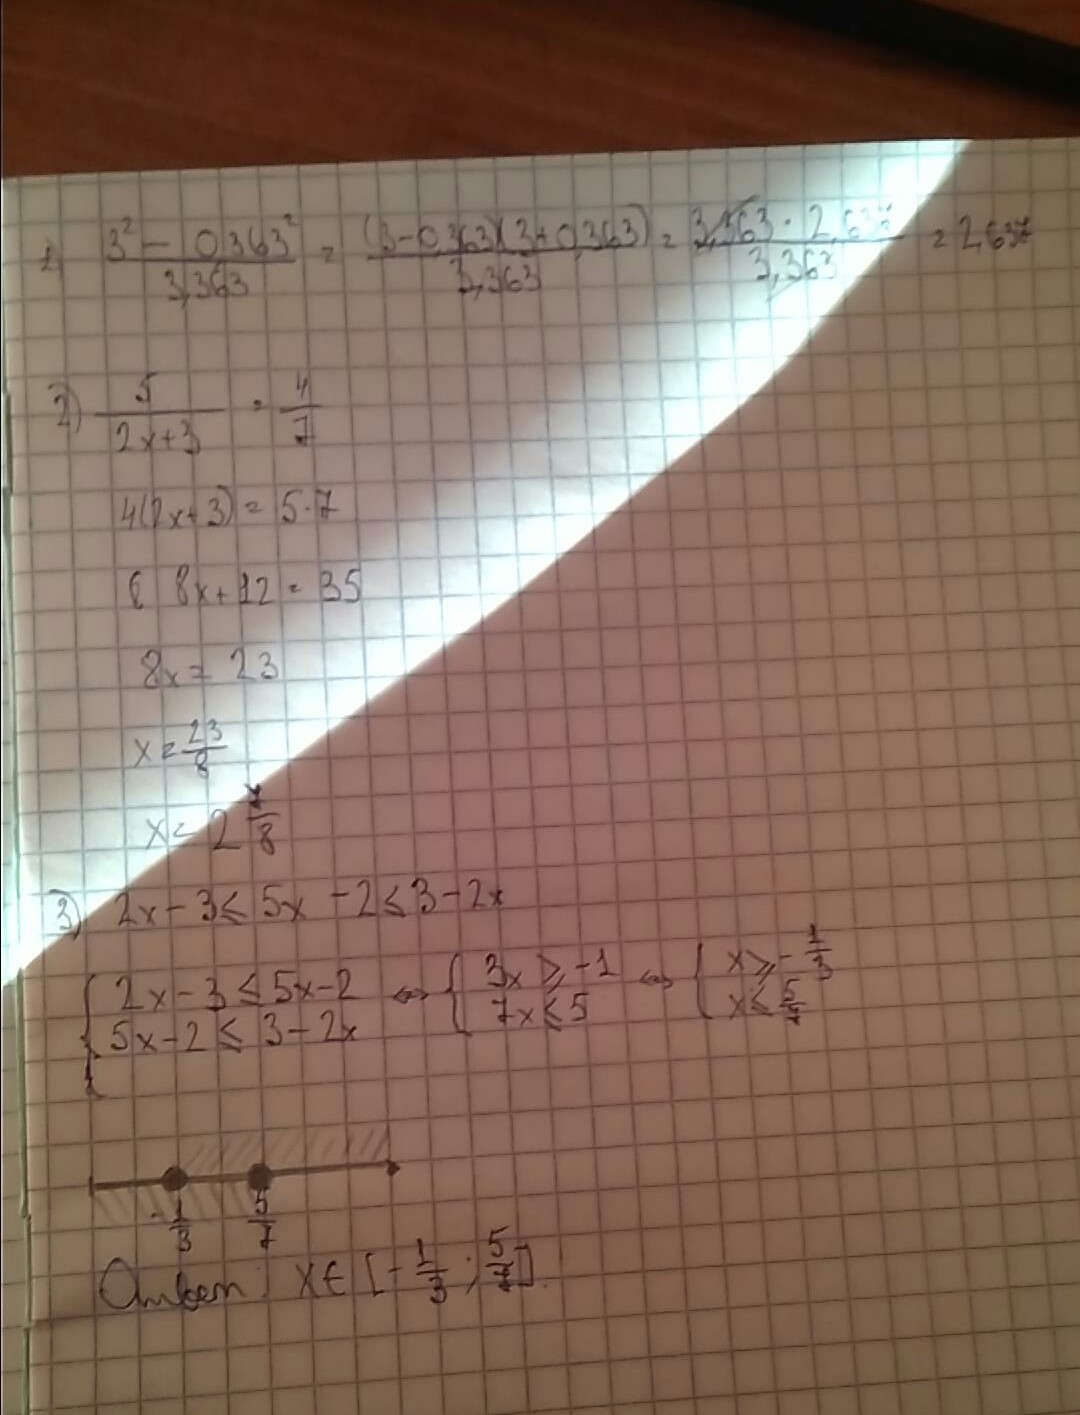 1) (3² - 0,363²)/3,363 = ((3-0,363)(3+0,363))/3,363 = (3,363 · 2,637)/3,363 = 2,637
2) 5/(2x+3) = 4/7
4(2x+3) = 5·7
8x+12 = 35
8x = 23
x = 23/8
x = 2 7/8
3) 2x-3 ≤ 5x-2 ≤ 3-2x
{ 2x-3 ≤ 5x-2 ⇔ { 3x ≥ -1 ⇔ { x ≥ -1/3
5x-2 ≤ 3-2x 7x ≤ 5 x ≤ 5/7
-1/3 5/7
Ответ: x ∈ [-1/3 ; 5/7].